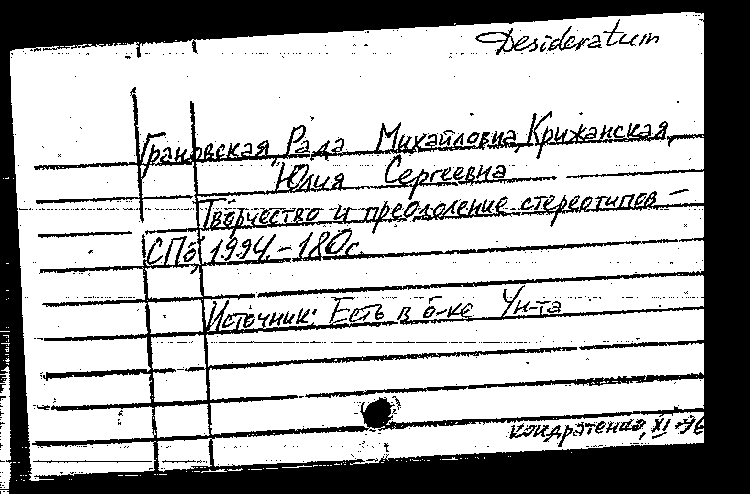 Desideratum
Грановская, Рада Михайловна, Крижанская,
Юлия Сергеевна
Творчество и преодоление стереотипов –
СПб, 1994. – 180с.
Источник: Есть в б-ке Ун-та
Кондратенко, XI-96